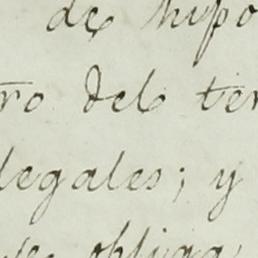 de hipo
ro del ter
legales; y
se obliga